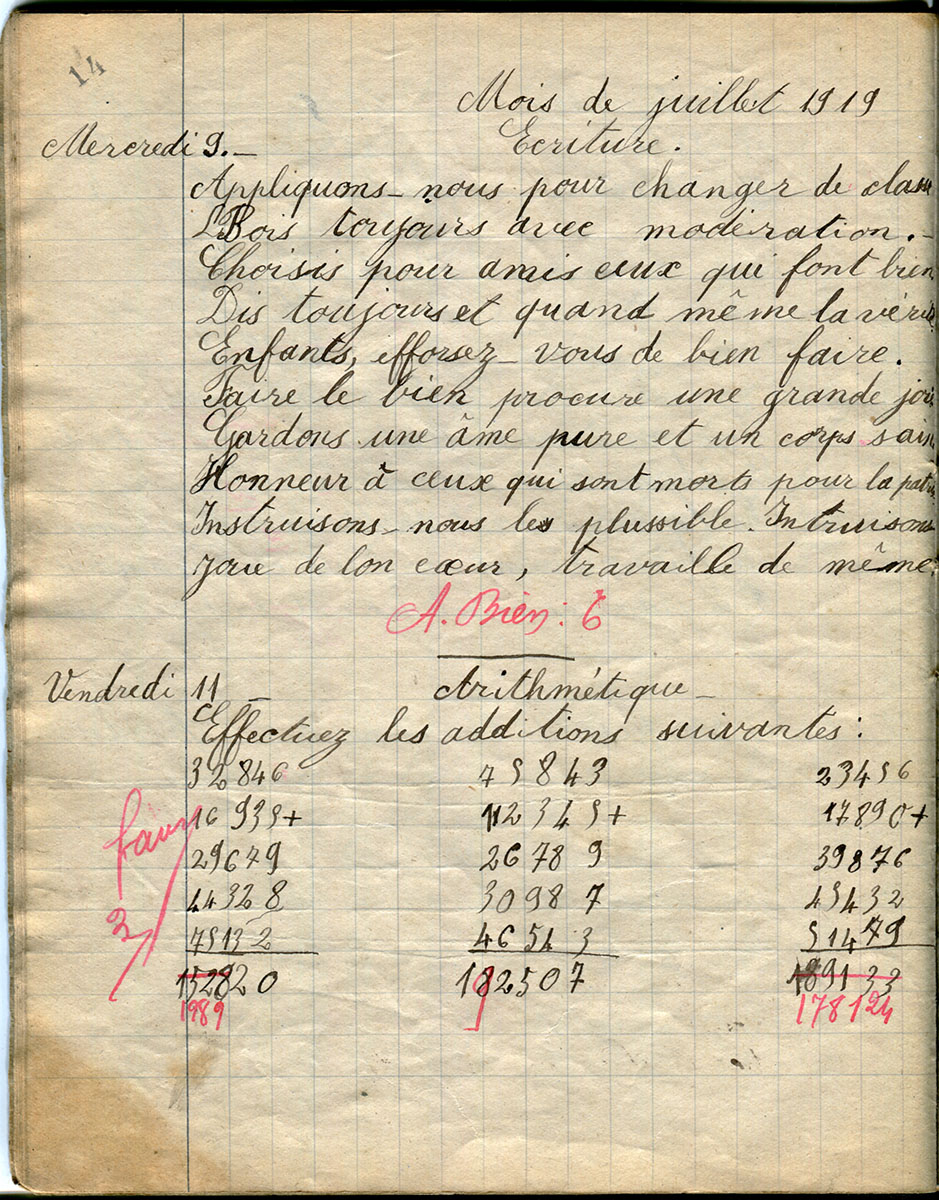 14
Mois de juillet 1919
Mercredi 9. Ecriture.
Appliquons-nous pour changer de classe
Bois toujours avec modération.
Choisis pour amis ceux qui font bien
Dis toujours et quand même la vérité
Enfants, efforsez-vous de bien faire.
Faire le bien procure une grande joie
Gardons une âme pure et un corps sain
Honneur à ceux qui sont morts pour la patrie
Instruisons-nous les plussible. Intruisons
Joue de lon cœur, travaille de même.
A. Bien : 6
Vendredi 11 Arithmétique
Effectuez les additions suivantes :
32846 75843 23456
16935+ 12345+ 17890+
faux
29679 26789 39876
44328 30987 45432
3
75132 46543 51479
152820 182507 189133
1989 9 178124